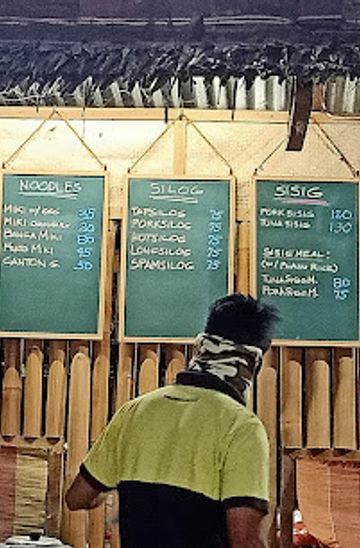 NOODLES
MIKI W/ EGG 35
MIKI 30
BAHEA MIKI 80
MIKI 45
CANTON G. 50
SILOG
TAPSILOG 75
PORKSILOG 75
HOTSILOG 75
LONGSILOG 75
SPAMSILOG 75
SISIG
PORK SISIG 120
TUNA SISIG 130
SISIG MEAL:
(W/ PLAIN RICE)
TUNASIG M. 80
PORKSIG M. 75